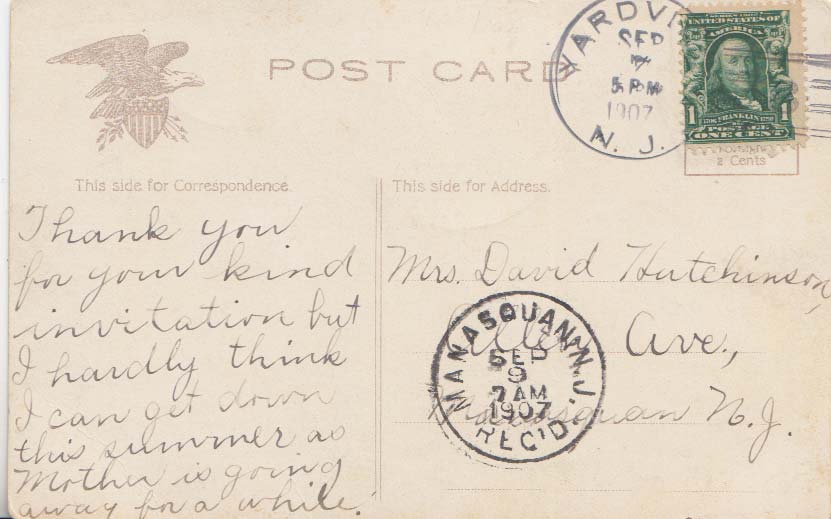 POST CARD
YARDV
SEP
7
5 PM
1907
N. J.
SERIES 1902
UNITED STATES OF
AMERICA
1 1
FRANKLIN
POSTAGE
ONE CENT
2 Cents
This side for Correspondence.
This side for Address.
Thank you
for your kind
invitation but
I hardly think
I can get down
this summer as
Mother is going
away for a while.
Mrs. David Hutchinson,
Ave.,
Manasquan N. J.
MANASQUAN, N. J.
SEP
9
7 AM
1907
REC'D.